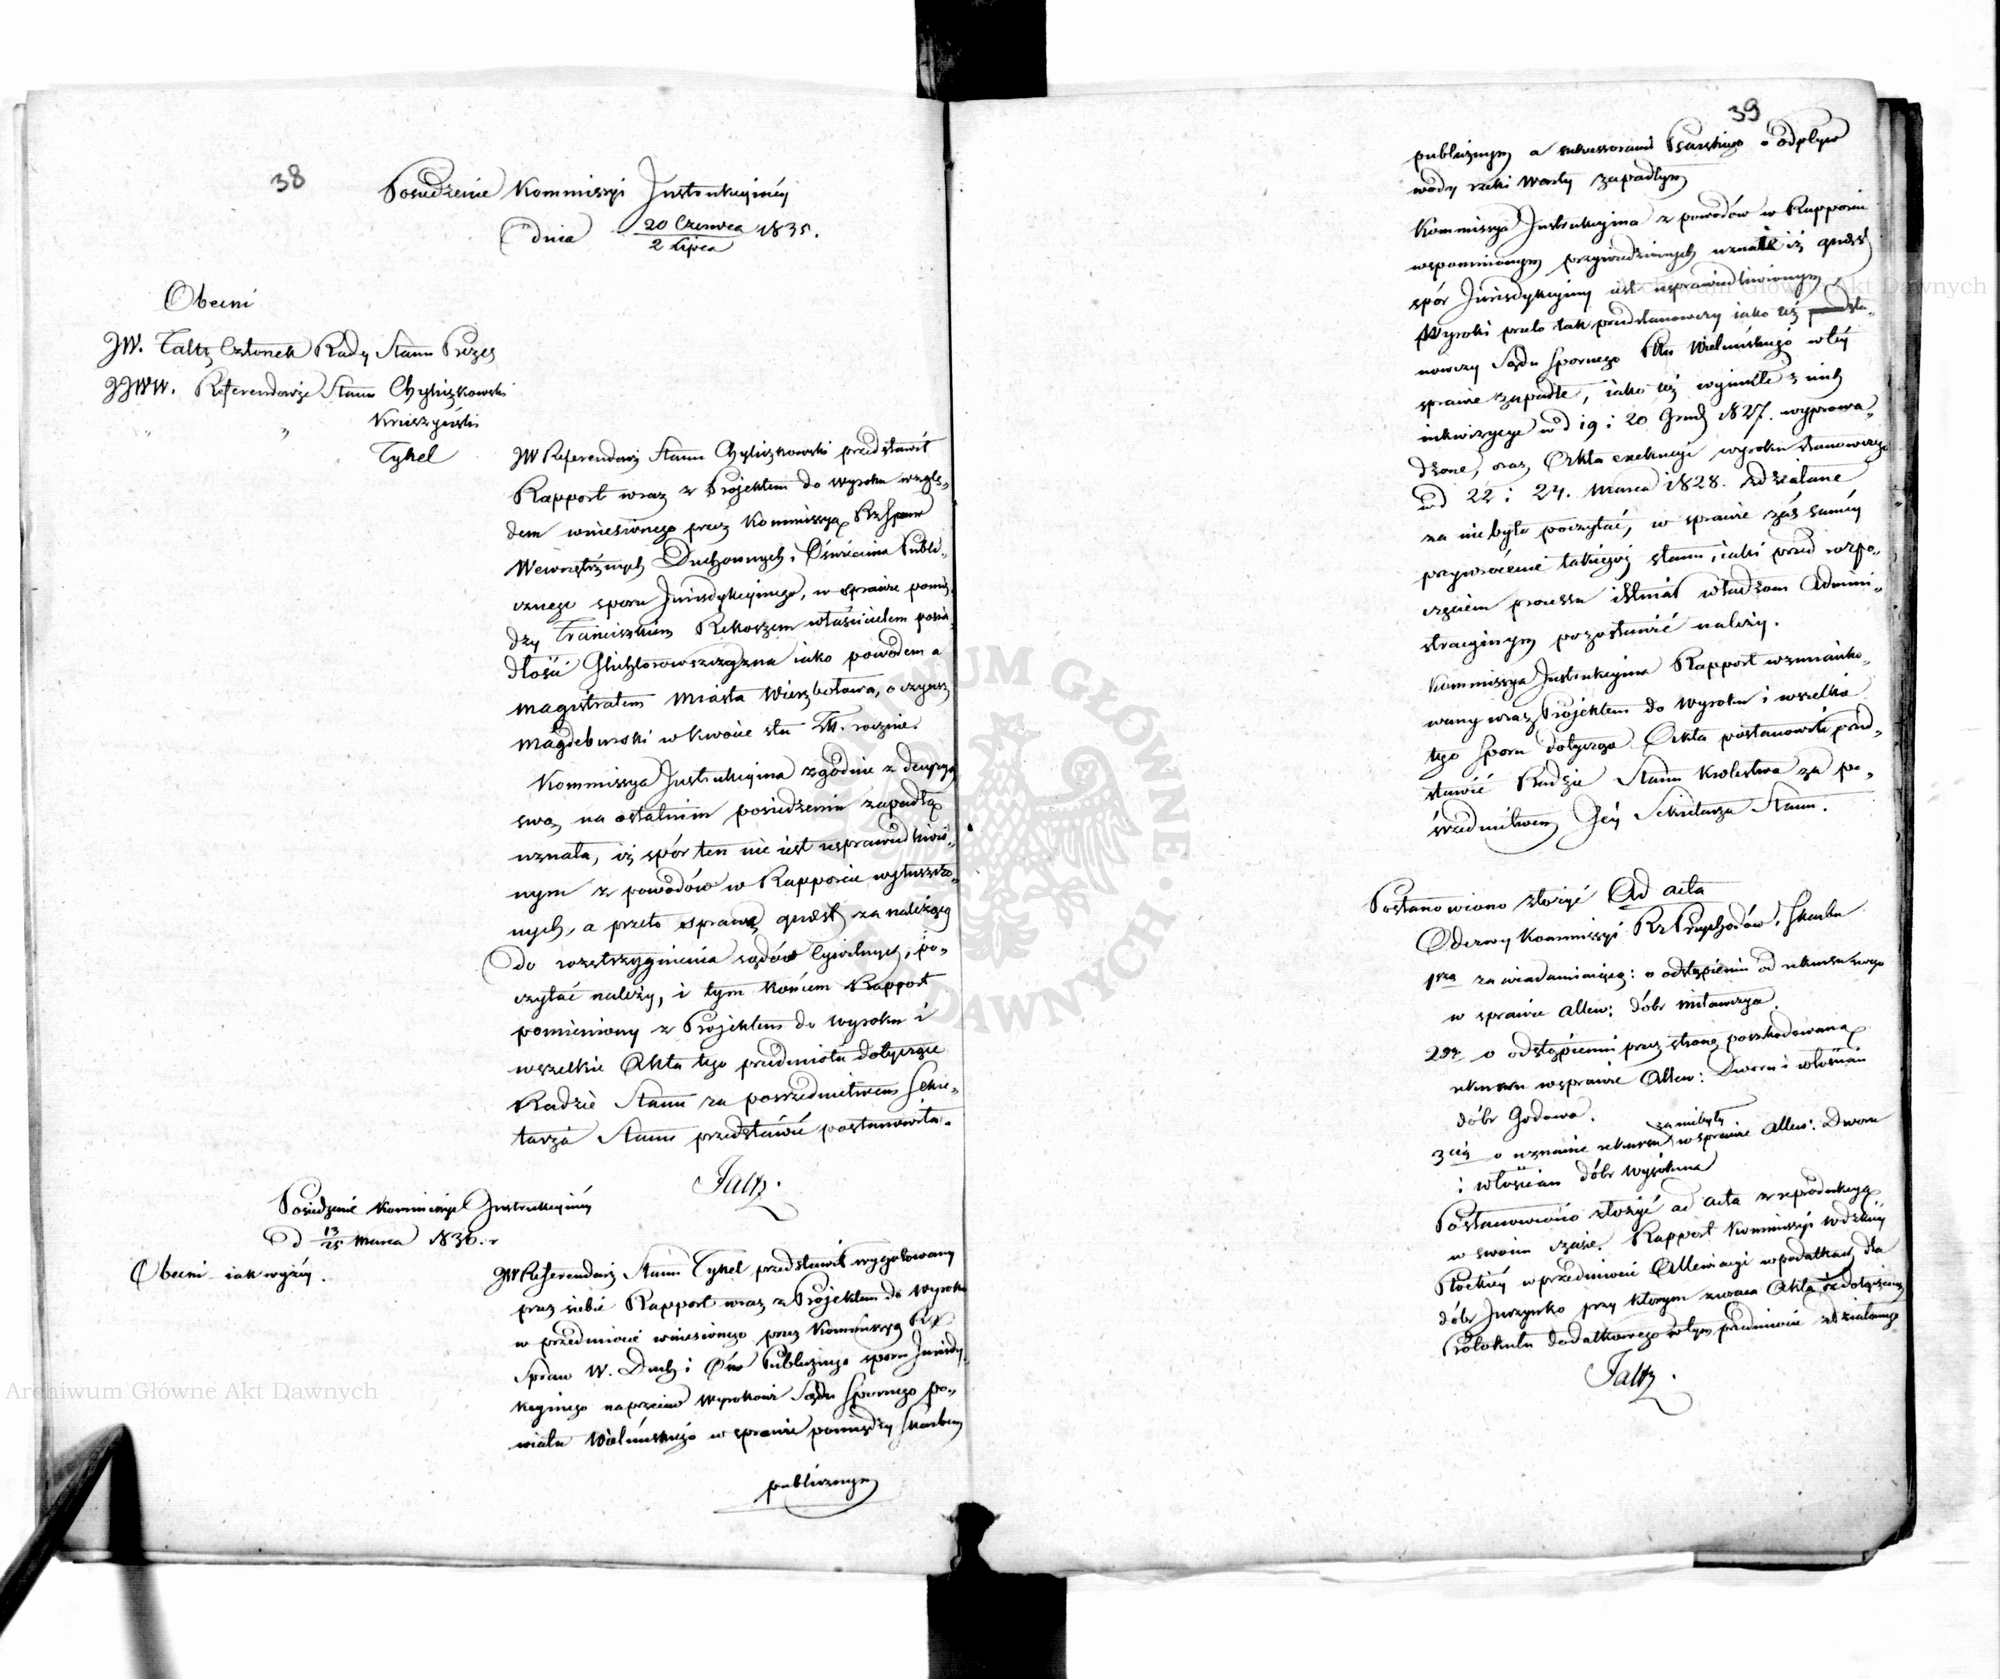 38
Posiedzenie Kommissyi Instrukcyinéy
dnia 20 Czerwca / 2 Lipca 1835.
Obecni
JW. Faltz Członek Rady Stanu Prezes
JJWW. Referendarze Stanu Chyliczkowski
" " Kruszyński
Tykel
JW Referendarz Stanu Chyliczkowski przedstawił
Rapport wraz z Projektem do wyroku wzglę„
dem wniesionego przez Kommissyą Rz Spraw
Wewnętrznych Duchownych i Oświecenia Publi„
cznego sporu Jurisdykcyinego, w sprawie pomię„
dzy Franciszkiem Rekoszem właścicielem posia„
dłości Glichtorowszczyzna iako powodem a
Magistratem Miasta Wierzbołowa, o czynsz
Magdeburski w kwocie stu Tal. rocznie.
Kommissya Instrukcyina zgodnie z decyzyą
swą na ostatnim posiedzeniu zapadłą
uznała, iż spór ten nie iest usprawiedliwio„
nym z powodów w Rapporcie wyłuszczo„
nych, a przeto sprawę quaest za należącą
do rozstrzygnienia sądów Cywilnych, po„
czytać należy, i tym końcem Rapport
pomieniony z Projektem do wyroku i
wszelkie Akta tego przedmiotu dotyczące
Radzie Stanu za pośrzednictwem Sekre„
tarza Stanu przedstawić postanowiła.
Faltz.
Posiedzenie Kommissyi Instrukcyinéy
d 13/25 Marca 1836. r
Obecni iak wyżéy.
JW Referendarz Stanu Tykel przedstawił wygotowany
przez siebie Rapport wraz z Projektem do Wyroku
w przedmiocie wniesionego przez Kommissyą Rz
Spraw W. Duch i Ośw Publicznego sporu Jurisdy„
kcyinego naprzeciw Wyrokowi Sądu Spornego po„
wiatu Wieluńskiego w sprawie pomiędzy Skarbem
publicznym
39
publicznym a sukcessorami Psarskiego o odpływ
wody rzeki Warty zapadłym
Kommissya Instrukcyina z powodów w Rapporcie
wspomnionym przywiedzionych uznała iż quaest
spór Jurisdykcyiny iest usprawiedliwionym
Wyroki przeto tak przedstanowczy iako też sta„
nowczy Sądu Spornego Pttu Wieluńskiego w téy
sprawie zapadłe, iako też wynikłe z nich
inkwizycye w d 19 i 20 Grud 1827. wyprowa„
dzone, oraz Akta exekucyi wyroku stanowczego
w d 22 i 24. Marca 1828. zdziałane
za niebyłe poczytać, w sprawie zaś saméy
przywrócenie takiegoż stanu, iaki przed rozpo„
częciem processu istniał władzom Admini„
stracyinym pozostawić należy.
Kommissya Instrukcyina Rapport wzmianko„
wany wraz Projektem do Wyroku i wszelkie
tego sporu dotyczące Akta postanowiła przed„
stawić Radzie Stanu Królestwa za po„
śrzednictwem Jéy Sekretarza Stanu.
Postanowiono złożyć Ad acta
Odezwy Kommissyi Rz Przychodów i Skarbu
1sza zawiadamiaiącą: o odstąpieniu od rekursu
w sprawie Allew: dóbr Miławczyce
2ga o odstąpieniu przez stronę poszkodowaną
rekursu w sprawie Allew: Dworu i włościan
dóbr Godowa.
3cią o uznanie rekursu za niebyły w sprawie Allew: Dworu
i włościan dóbr Wysokina
Postanowiono złożyć ad acta z reprodukcyą
w swoim czasie. Rapport Kommissyi Wdzkiéy
Płockiéy w przedmiocie Allewiacyi w podatkach dla
dóbr Jurzynko przy którym zwraca Akta z dołączeniem
Protokułu dodatkowego w tym przedmiocie zdziałanego
Faltz.
ARCHIWUM GŁÓWNE AKT DAWNYCH
Archiwum Główne Akt Dawnych
Archiwum Główne Akt Dawnych